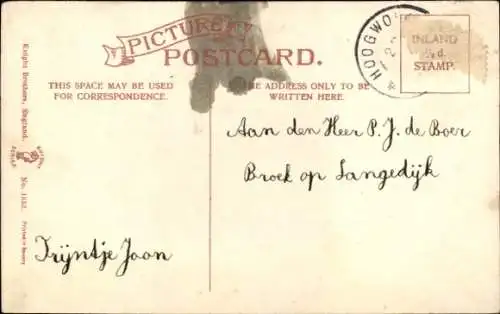 PICTURE
POSTCARD.
THIS SPACE MAY BE USED
FOR CORRESPONDENCE.
THE ADDRESS ONLY TO BE
WRITTEN HERE.
HOOGWO
INLAND
½d.
STAMP.
Aan den Heer P. J. de Boer
Broek op Langedijk
Trijntje Joon
Knight Brothers, England.
No. 1652.